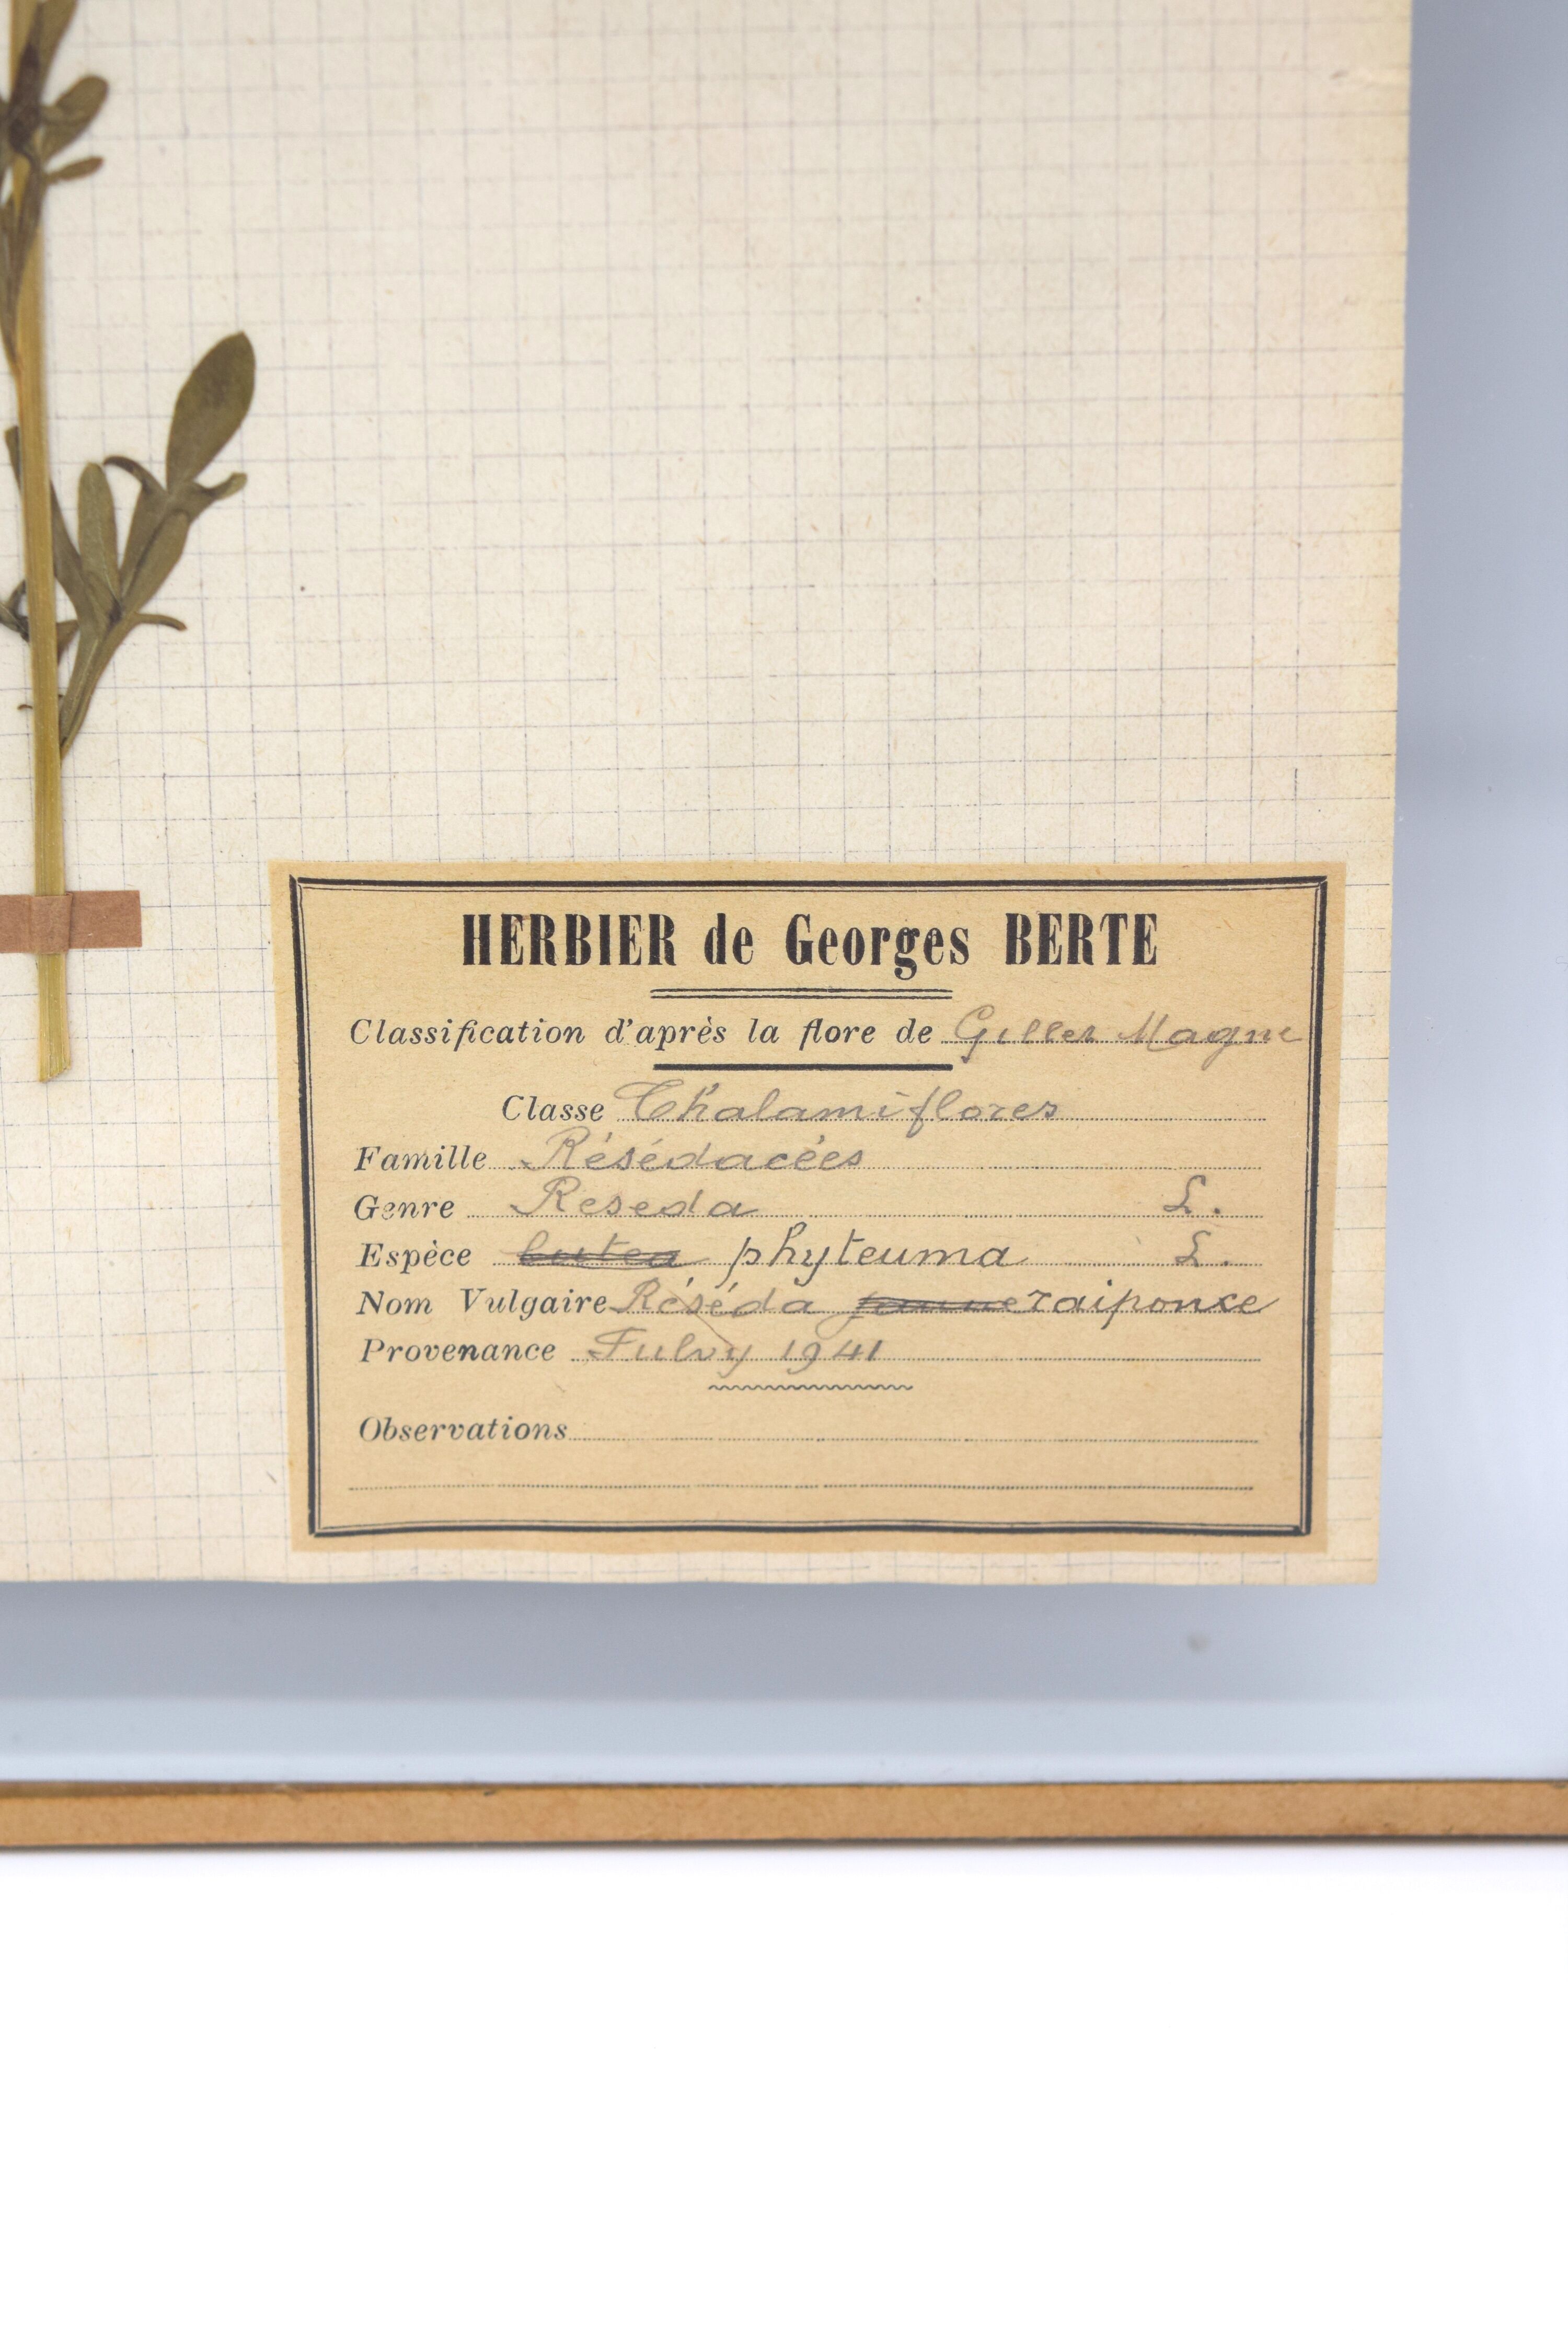 HERBIER de Georges BERTE
Classification d'après la flore de Gillet Magne
Classe Thalamiflores
Famille Résédacées
Genre Reseda L.
Espèce lutea phyteuma L.
Nom Vulgaire Réséda jaune raiponce
Provenance Fulvy 1941
Observations